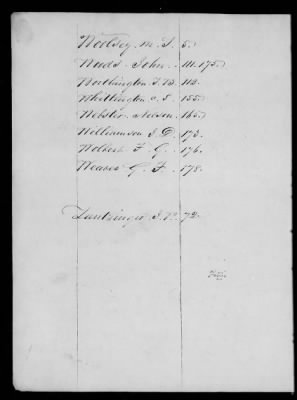 Wootsey. M. S. 5.
Woods. John. 111. 175.
Worthington T. B. 112.
Whittington C. S. 155.
Webster. Nelson. 165.
Williamson J. D. 173.
F. G. 176.
Weaver G. F. 178.
Zantzinger J. P. 72.